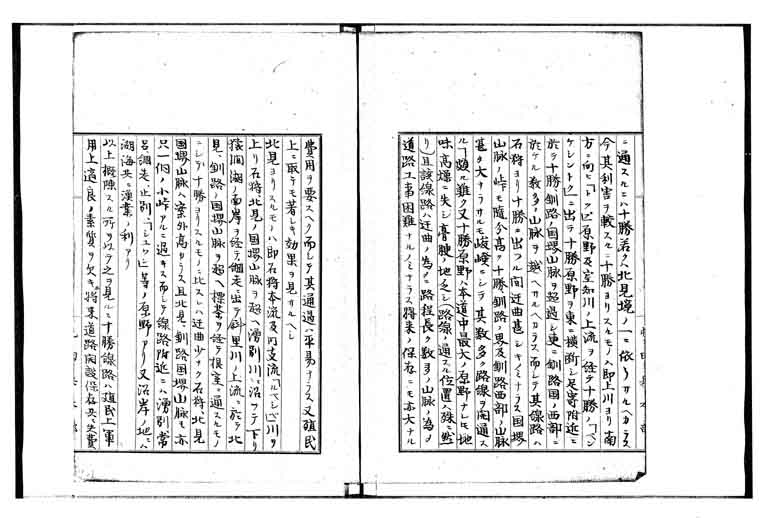 ニ通スルニハ十勝若クハ北見境ノ一ニ依ラサルヘカラス
今其利害ヲ較スルニ十勝ヨリスルモノハ即上川ヨリ南
方ニ向ヒ「トクピ」原野及空知川ノ上流ヲ経テ十勝ノ「ペン
ケレントク」ニ出テ十勝原野ヲ東ニ横断シ足寄附近ニ
於テ十勝、釧路ノ国堺山脈ヲ超過シ更ニ釧路国ノ西部ニ
於ケル数多ノ山脈ヲ越ヘサルヘカラス而シテ其線路ハ
石狩ヨリ十勝ニ出ツル間迂曲甚シキノミナラス国堺
山脈ノ峠モ随分高ク十勝釧路ノ界及釧路西部ノ山脈
甚タ大ナラサルモ峻嶮ニシテ其数多ク路線ヲ開通ス
ル頗ル難ク又十勝原野ハ本道中最大ノ原野ナレモ地
味高燥ニ失シ膏腴ノ地乏シ路線ノ通スル位置ハ殊ニ然
リ且該線路ハ迂曲ノ為メニ路程長ク数多ノ山脈ノ為メ
道路工事困難ナルノミナラス将来ノ保存ニモ亦大ナル
費用ヲ要スヘク而シテ其通過ハ平易ナラス又殖民
上ニ取テモ著シキ効果ヲ見サルヘシ
北見ヨリスルモノハ即石狩本流及同支流「ルベシベ」川ヲ
上リ石狩北見ノ国堺山脈ヲ超ヘ湧別川ニ沿フテ下リ
猿澗湖ノ南岸ヲ経テ網走ニ出テ斜里川ノ上流ニ於テ北
見、釧路ノ国堺山脈ヲ超ヘ標茶ヲ経テ根室ニ通スルモノ
ニシテ十勝ヨリスルモノニ比スレハ迂曲少ナク石狩、北見
国堺山脈ハ案外高カラス且北見、釧路国堺山脈モ亦
只一個ノ小峠アルニ過キス而シテ線路附近ニハ湧別常
呂網走、止別、「シュワ」等ノ原野アリ又沿岸ノ地ニハ
湖海共ニ漁業ノ利アリ
以上概陳スル所ヲ以テ之ヲ見ルニ十勝線路ハ殖民上軍
用上適良ノ素質ヲ欠キ将来道路開設保存共ニ失費